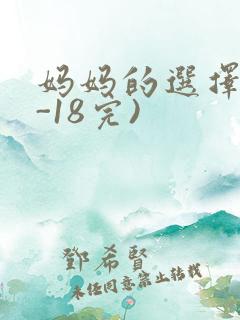 妈妈的選擇
-18完)
鄧希賢
未经同意禁止转载